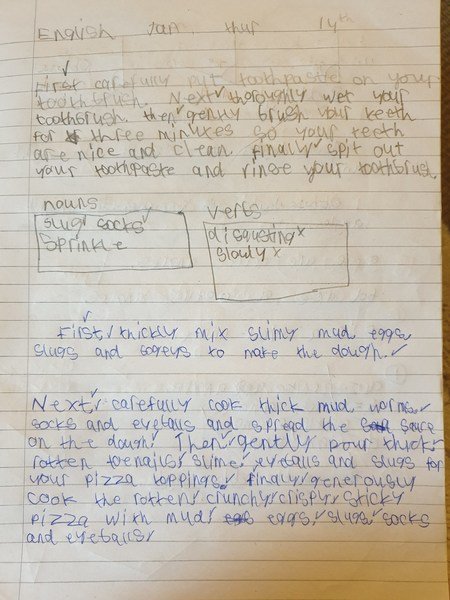 English Jan thur 14th
First carefully put toothpaste on your
toothbrush. Next thoroughly wet your
toothbrush. then gently brush your teeth
for three minutes so your teeth
are nice and clean finally spit out
your toothpaste and rinse your toothbrush.
nouns verbs
slug socks disgusting x
Sprinkle slowly x
First thickly mix slimy mud eggs
slugs and to make the dough.
Next carefully cook thick mud worms
socks and eyeballs and spread the sauce
on the dough. Then gently pour thick
rotten toenails slime eyeballs and slugs for
your pizza toppings. finally generously
cook the rotten crunchy crispy sticky
pizza with mud eggs slugs socks
and eyeballs